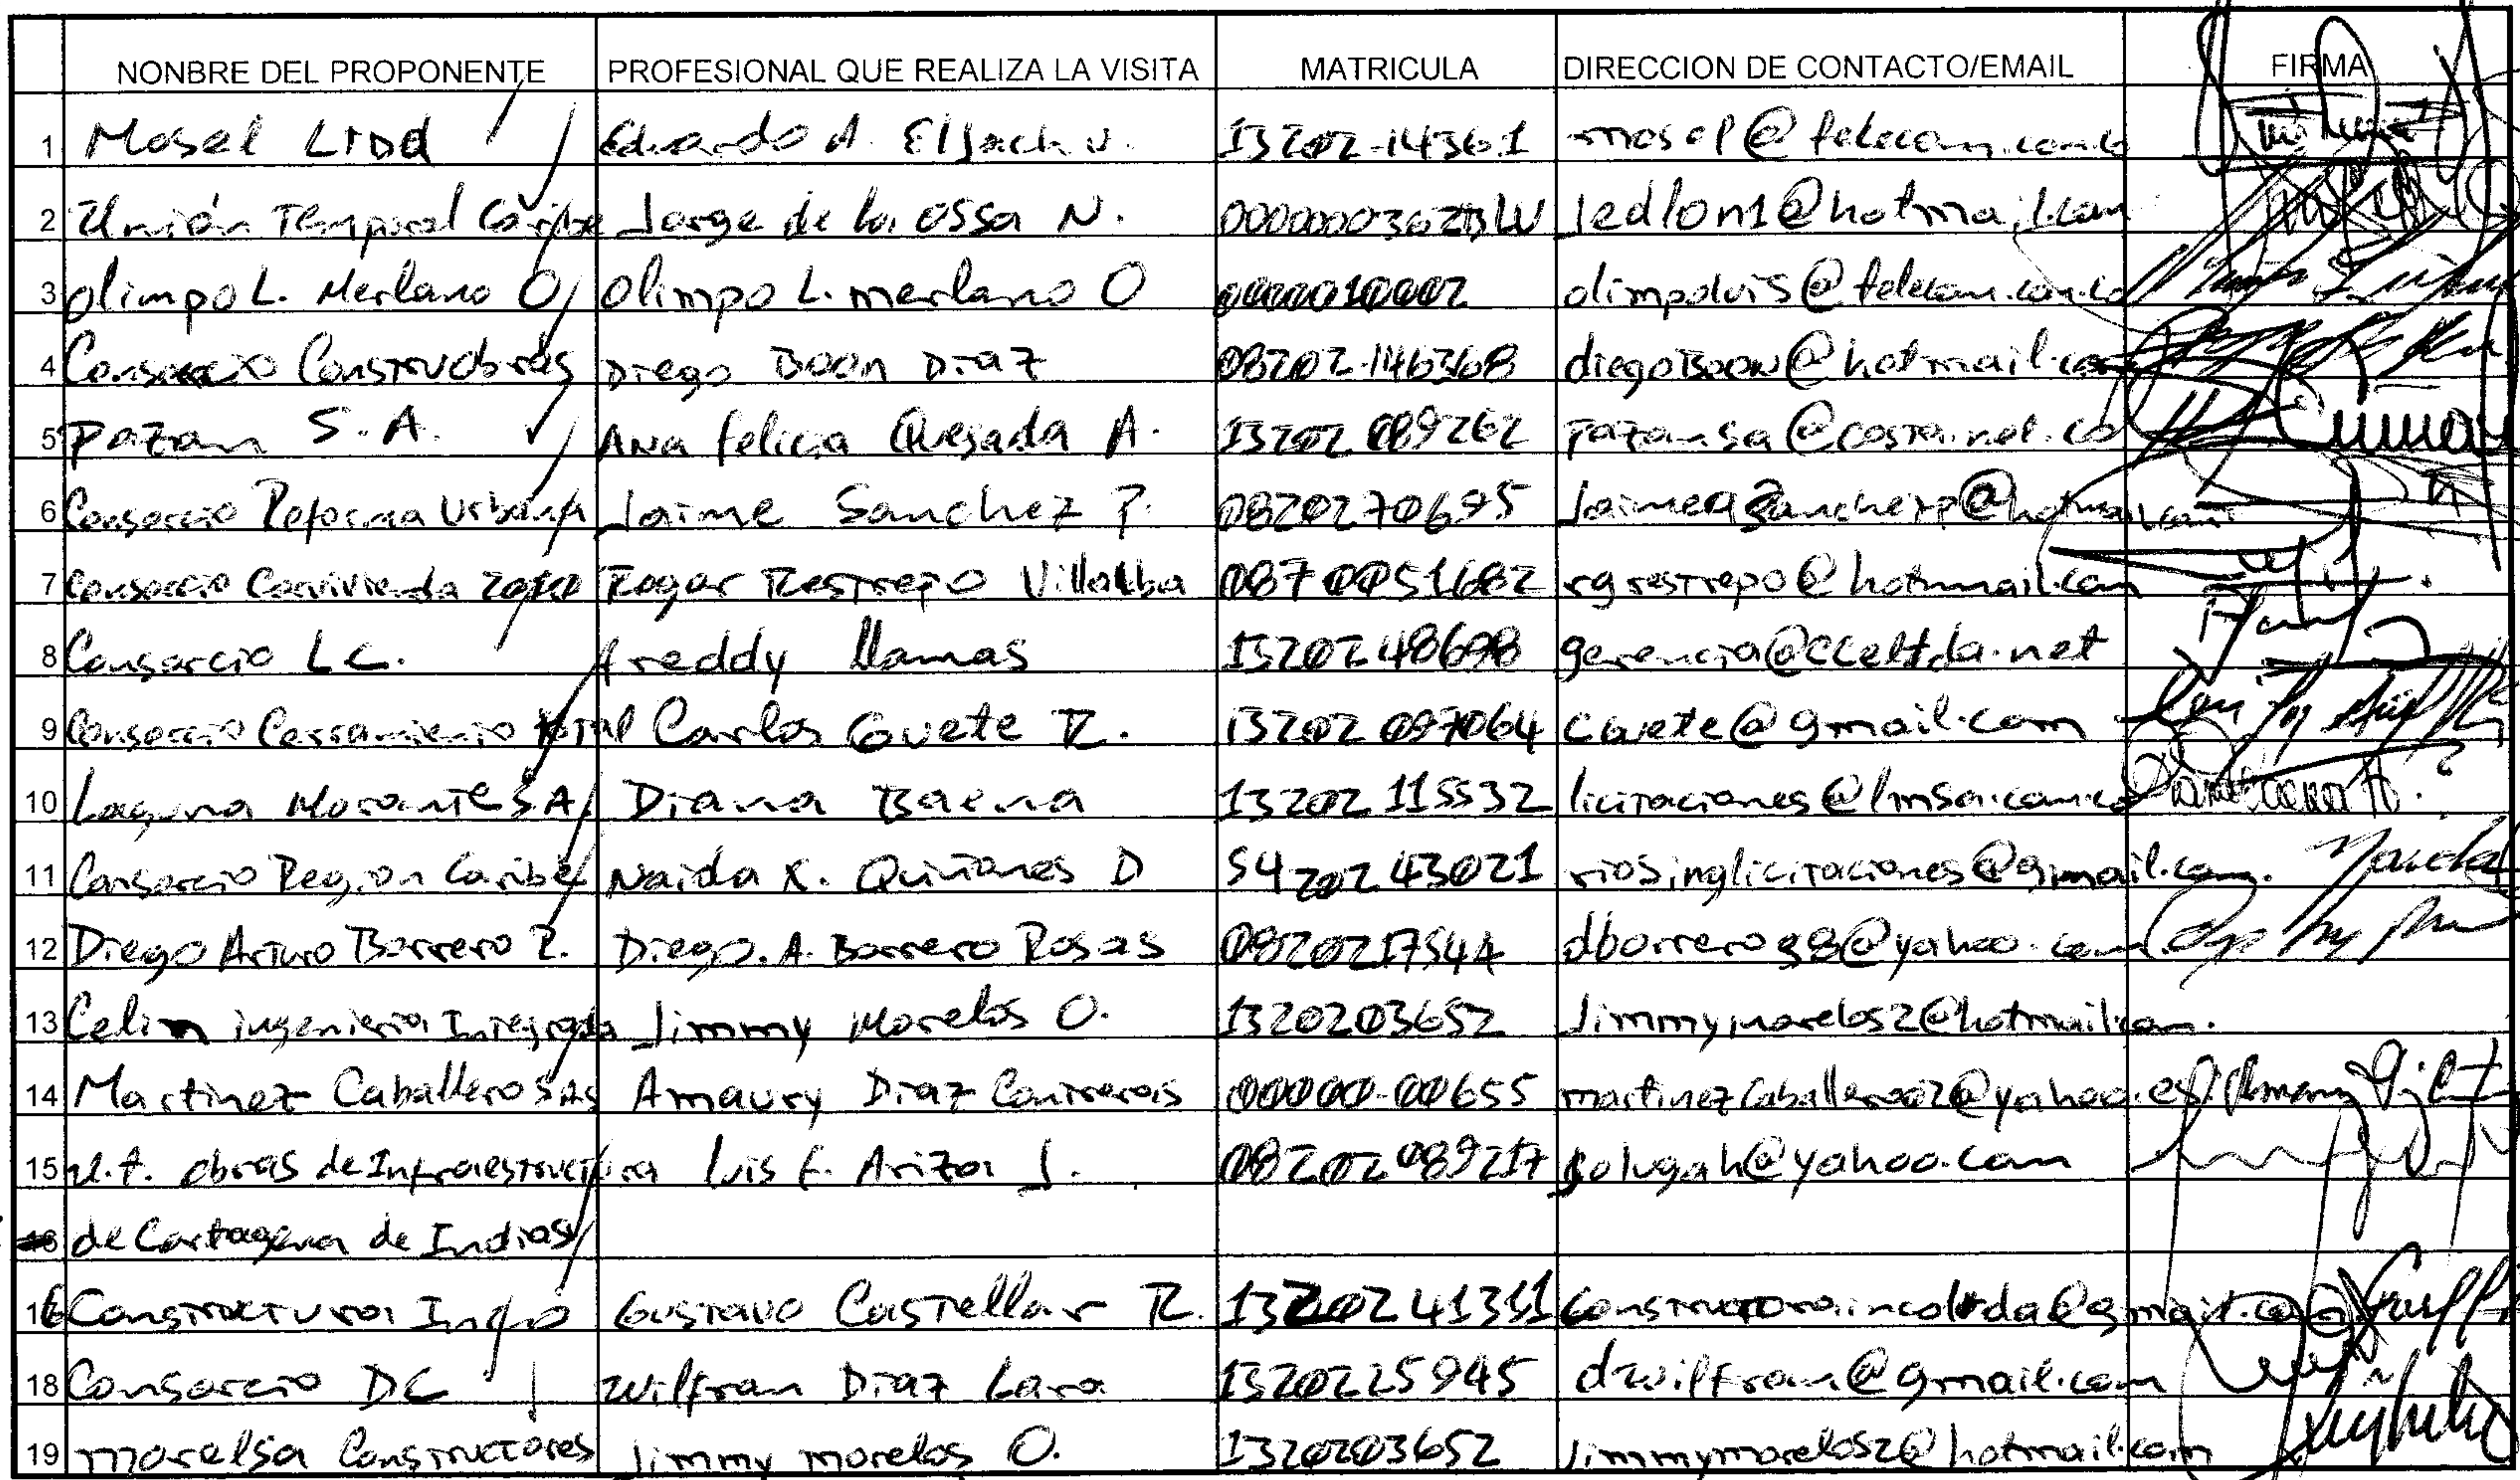 NONBRE DEL PROPONENTE PROFESIONAL QUE REALIZA LA VISITA MATRICULA DIRECCION DE CONTACTO/EMAIL FIRMA
1 Mosel LTDA Eduardo A. Eljach V. 13202-14361 mosel@telecom.com.co
2 Unión Temporal Caribe Jorge de la Ossa N. jedlon1@hotmail.com
3 Olimpo L. Merlano O Olimpo L. merlano O 0000010002 olimpoluis@telecom.com.co
4 Consorcio Constructores Diego Boon Diaz 08202-146368 diegoBoon@hotmail.com
5 Pazan S.A. Ana felicia Quesada A. 13202 089262 pazansa@costa.net.co
6 Consorcio Reforma Urbana Jaime Sanchez P. 0820270695
7 Consorcio Corvivienda Roger Restrepo Villalba 0870051682 rgrestrepo@hotmail.com
8 Consorcio LC. freddy llamas 1320248698 gerencia@cceltda.net
9 Consorcio Cerramiento total Carlos Guete R. 13202 097064 cguete@gmail.com
10 Laguna Morante S.A Diana Baena 13202 115532 licitaciones@lmsa.com.co
11 Consorcio Region Caribe Naida X. Quiñones D 5420243021 riosinglicitaciones@gmail.com.
12 Diego Arturo Borrero R. Diego. A. Borrero Rosas dborrero98@yahoo.com
13 Celin ingenieria Integrada Jimmy Morelos O. 1320203652 Jimmymorelos2@hotmail.com.
14 Martinez Caballero SAS Amaury Diaz Contreras 00000-00655 martinezcaballero02@yahoo.es
15 U.t. obras de Infraestructura luis f. Ariza J. 08202 089217 solugah@yahoo.com
de Cartagena de Indias
16 Constructora Inco Gustavo Castellar R. 1320241311 constructoraincoltda@gmail.com
18 Consorcio DC Wilfran Diaz Lara 1320225945 dwilfran@gmail.com
19 morelsa Constructores Jimmy morelos O. 1320203652 Jimmymorelos2@hotmail.com